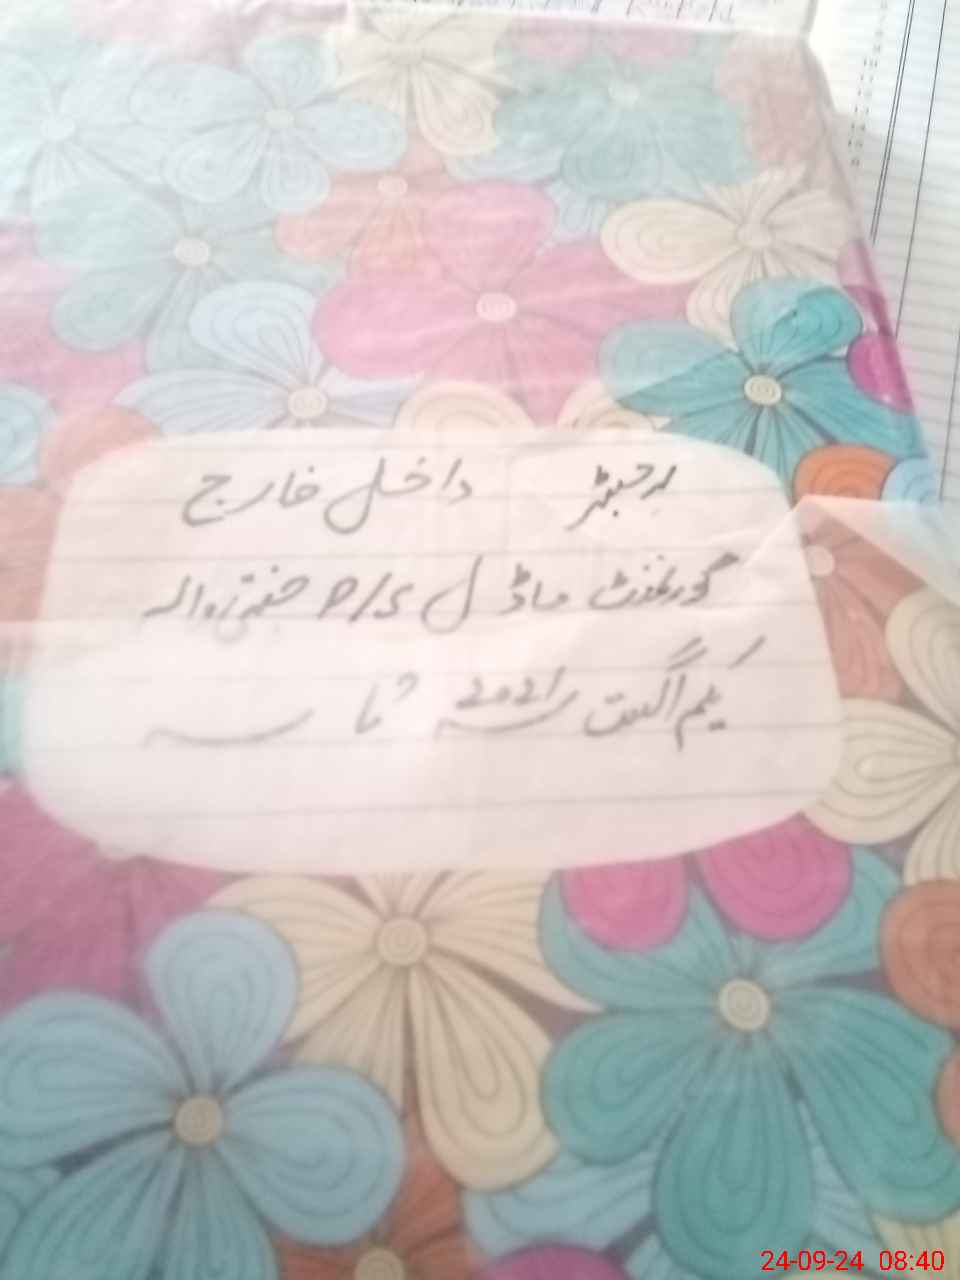 رجسٹر داخل خارج
گورنمنٹ ماڈل P/S
یکم اگست ۲۰۲۱ء تا
24-09-24 08:40